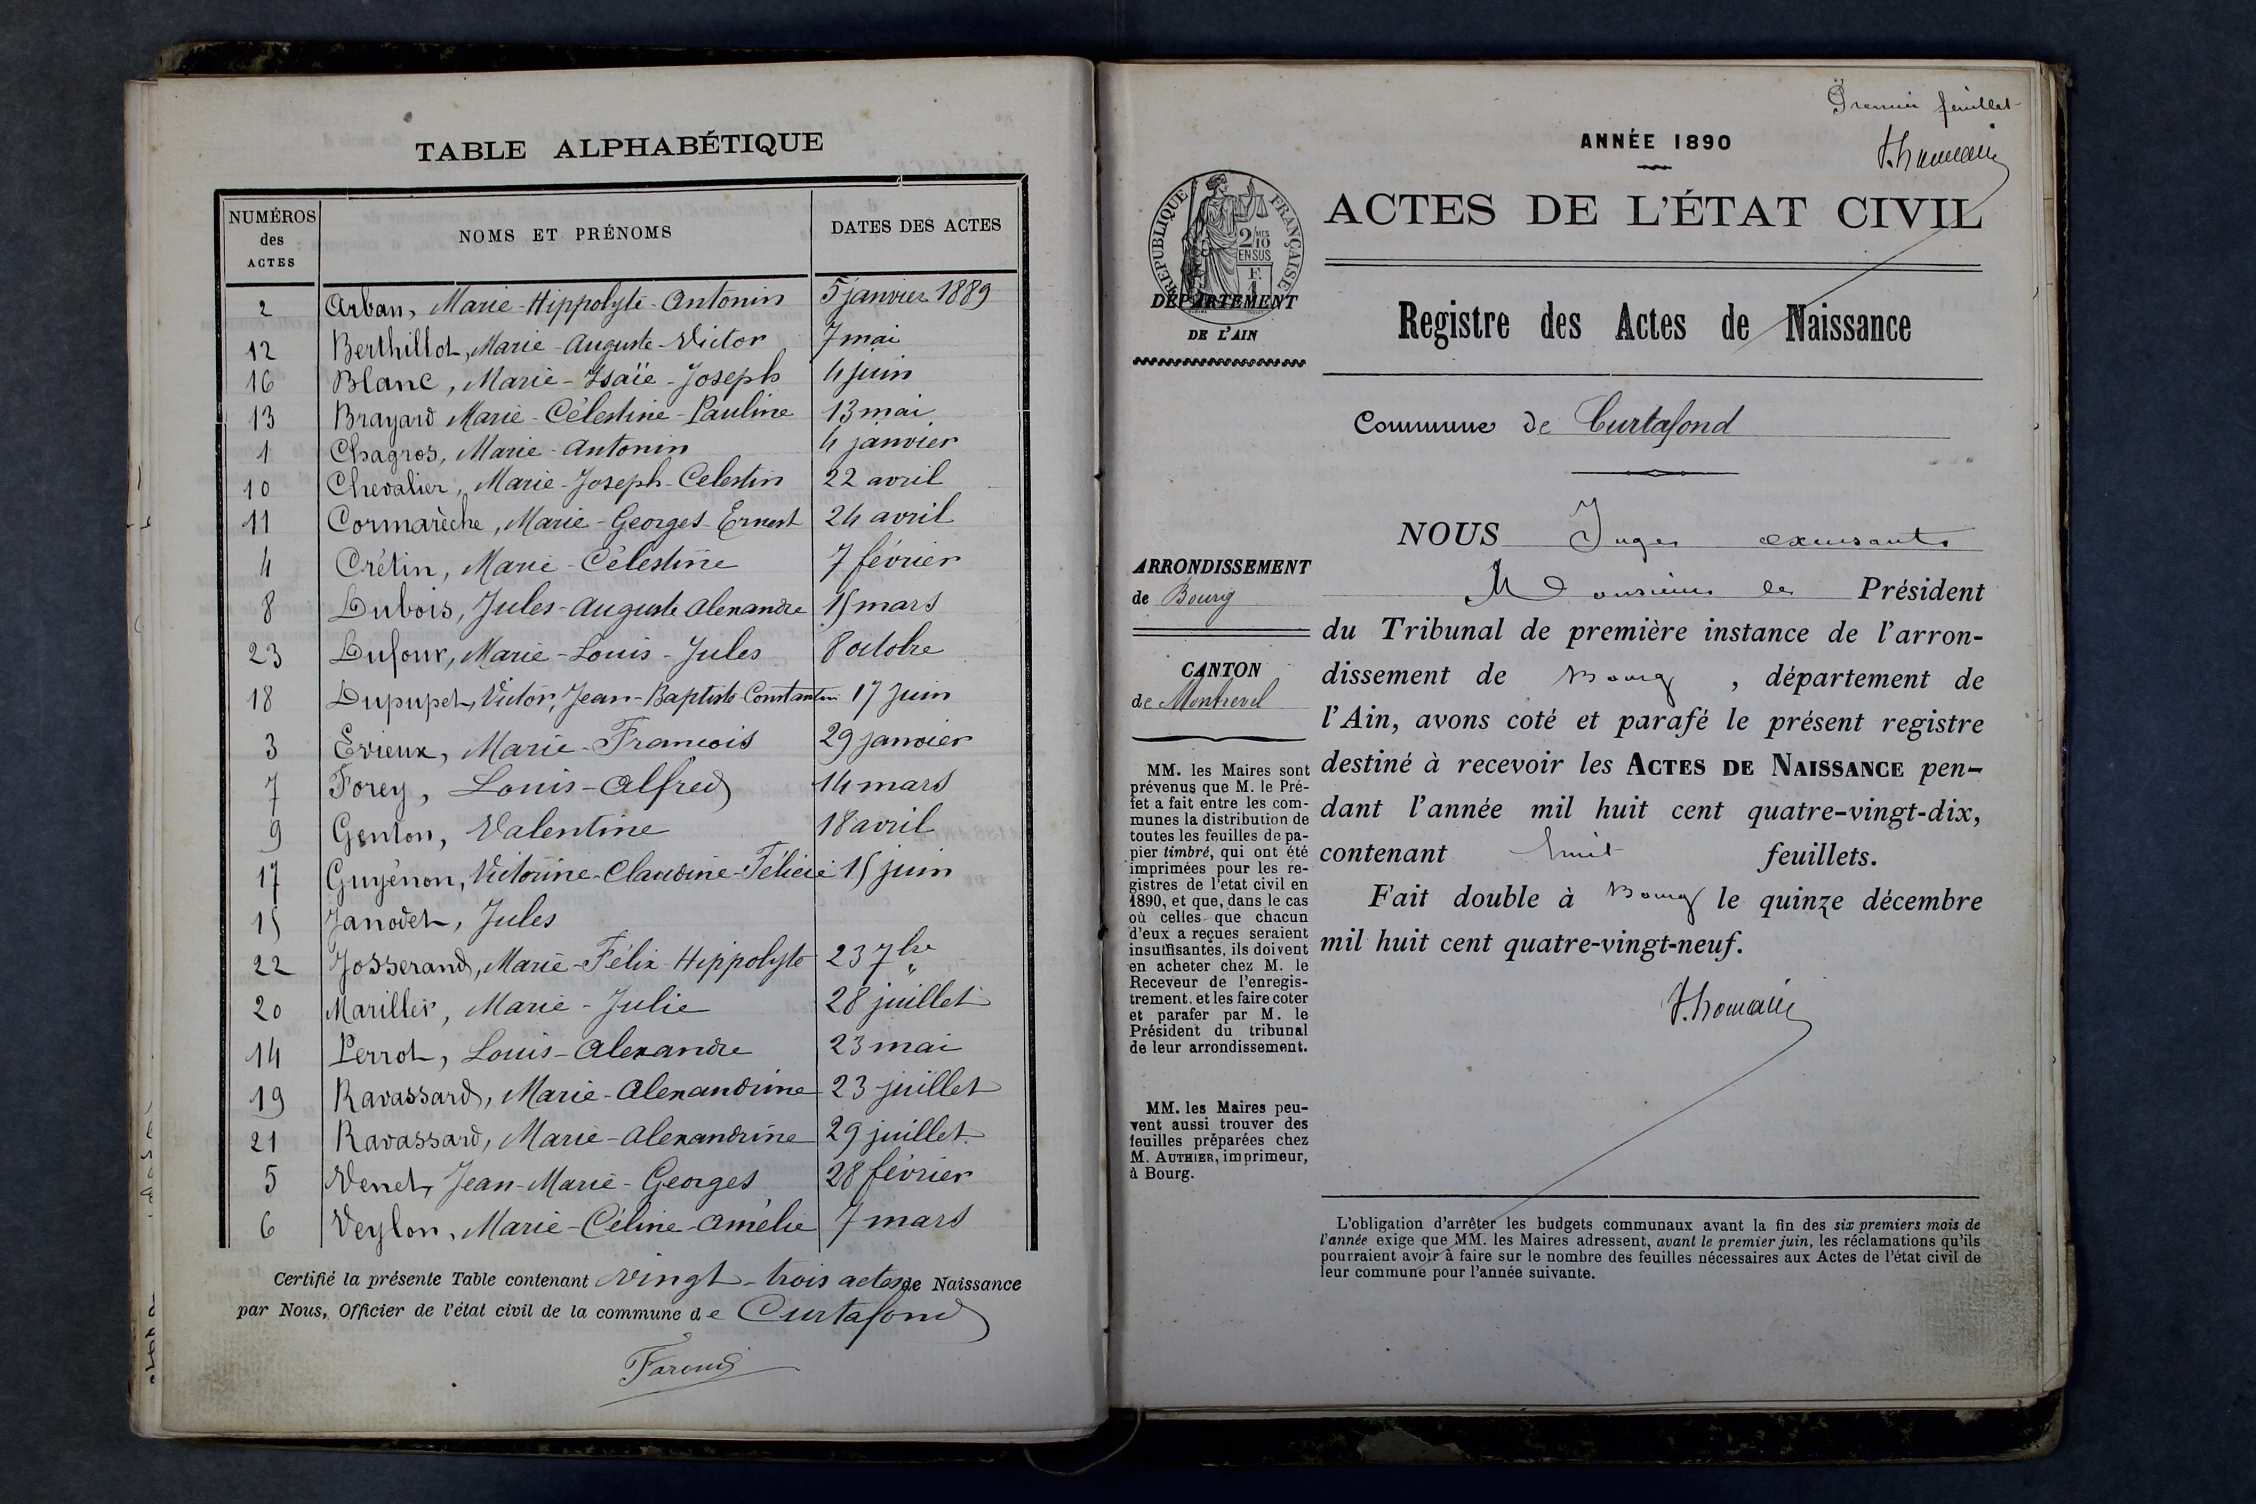 TABLE ALPHABÉTIQUE
NUMÉROS des ACTES NOMS ET PRÉNOMS DATES DES ACTES
2 Arban, Marie-Hippolyte-Antonin 5 janvier 1889
12 Berthillot, Marie-Auguste-Victor 7 mai
16 Blanc, Marie-Isaïe-Joseph 4 juin
13 Brayard Marie-Célestine-Pauline 13 mai
1 Chagros, Marie-Antonin 4 janvier
10 Chevalier, Marie-Joseph-Celestin 22 avril
11 Cormarèche, Marie-Georges-Ernest 24 avril
4 Crétin, Marie-Célestine 7 février
8 Dubois, Jules-Auguste Alexandre 15 mars
23 Dufour, Marie-Louis-Jules 8 octobre
18 Dupupet, Victor, Jean-Baptiste Constantin 17 juin
3 Evieux, Marie-Francois 29 janvier
7 Forey, Louis-Alfred 14 mars
9 Genton, Valentine 18 avril
17 Guyénon, Victorine-Claudine-Félicie 15 juin
15 Janodet, Jules
22 Josserand, Marie-Félix-Hippolyte 23 7bre
20 Marillier, Marie-Julie 28 juillet
14 Perrot, Louis-Alexandre 23 mai
19 Ravassard, Marie-Alexandrine 23 juillet
21 Ravassard, Marie-Alexandrine 29 juillet
5 Venet, Jean-Marie-Georges 28 février
6 Veylon, Marie-Céline-Amélie 7 mars
Certifié la présente Table contenant vingt-trois actes de Naissance
par Nous, Officier de l'état civil de la commune de Curtafond
Premier feuillet
ANNÉE 1890
ACTES DE L'ÉTAT CIVIL
RÉPUBLIQUE FRANÇAISE
2/10 EN SUS
DÉPARTEMENT
DE L'AIN
Registre des Actes de Naissance
Commune de Curtafond
ARRONDISSEMENT
de Bourg
CANTON
de Montrevel
MM. les Maires sont
prévenus que M. le Pré-
fet a fait entre les com-
munes la distribution de
toutes les feuilles de pa-
pier timbré, qui ont été
imprimées pour les re-
gistres de l'etat civil en
1890, et que, dans le cas
où celles que chacun
d'eux a reçues seraient
insuffisantes, ils doivent
en acheter chez M. le
Receveur de l'enregis-
trement, et les faire coter
et parafer par M. le
Président du tribunal
de leur arrondissement.
MM. les Maires peu-
vent aussi trouver des
feuilles préparées chez
M. AUTHIER, imprimeur,
à Bourg.
NOUS Juge
Monsieur le Président
du Tribunal de première instance de l'arron-
dissement de Bourg, département de
l'Ain, avons coté et parafé le présent registre
destiné à recevoir les ACTES DE NAISSANCE pen-
dant l'année mil huit cent quatre-vingt-dix,
contenant huit feuillets.
Fait double à Bourg le quinze décembre
mil huit cent quatre-vingt-neuf.
L'obligation d'arrêter les budgets communaux avant la fin des six premiers mois de
l'année exige que MM. les Maires adressent, avant le premier juin, les réclamations qu'ils
pourraient avoir à faire sur le nombre des feuilles nécessaires aux Actes de l'état civil de
leur commune pour l'année suivante.